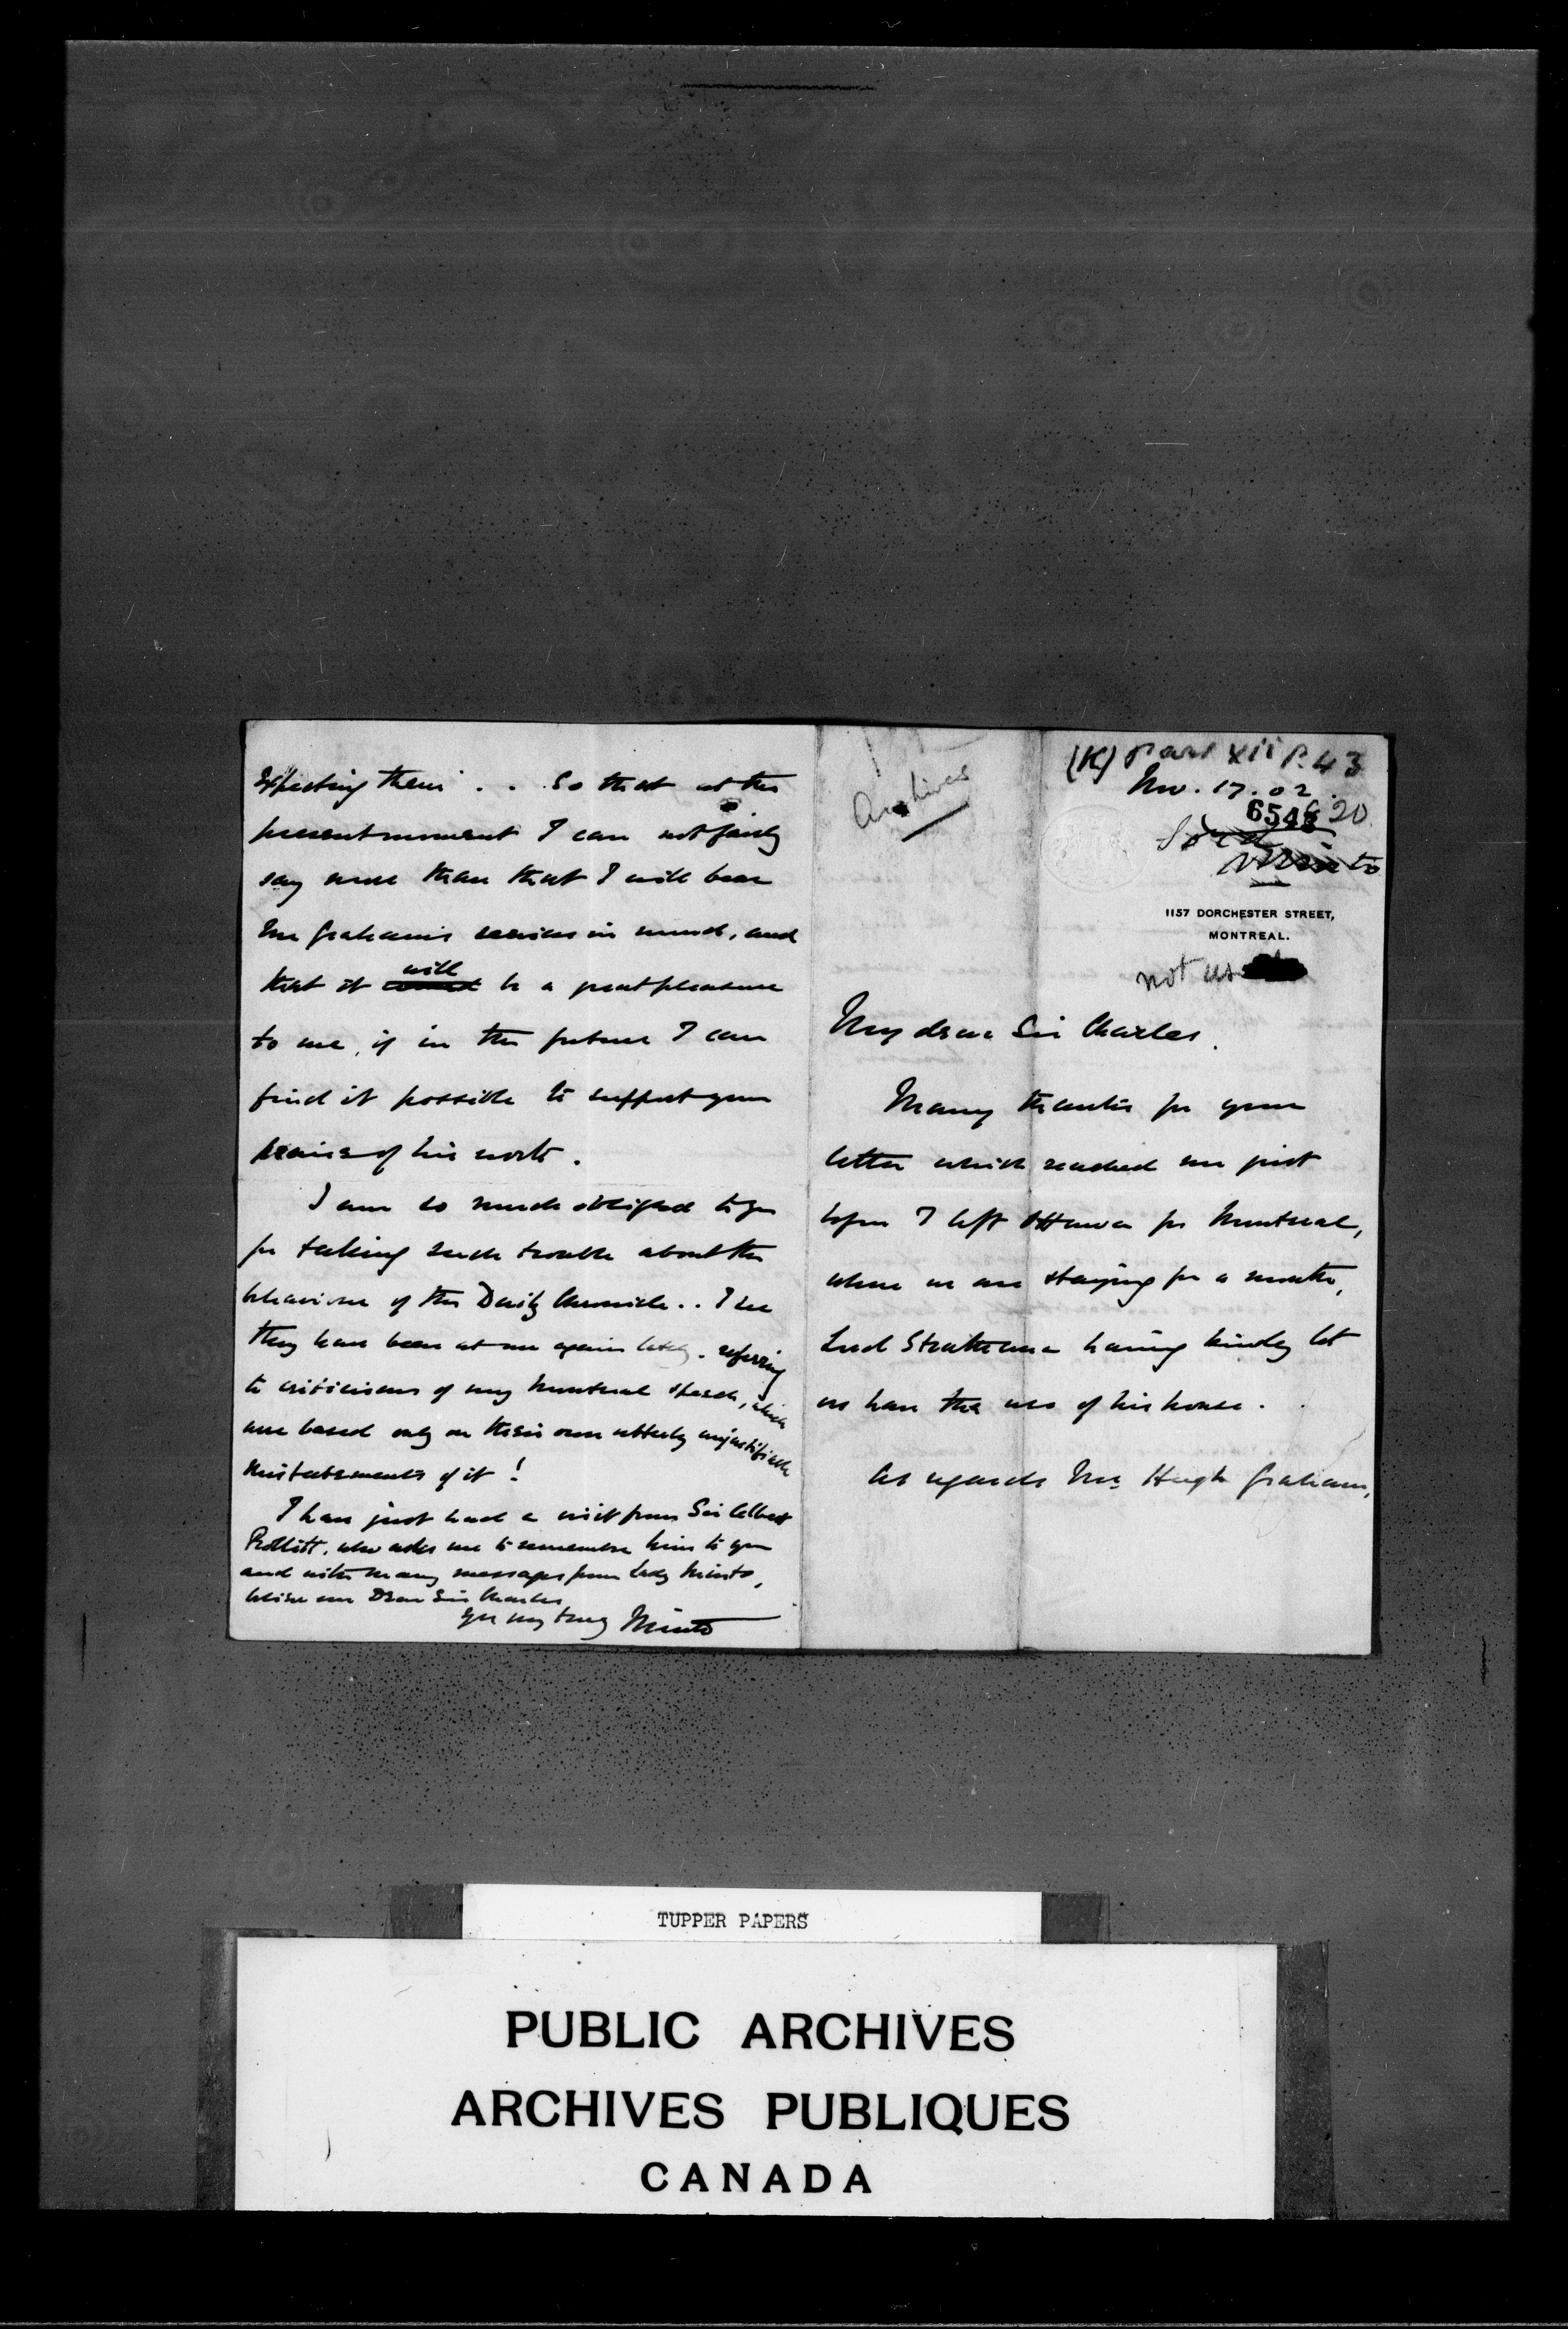 (K) Part XII P. 43
Nov. 17. 02.
6548
20
Lord
Minto
Archives
1157 DORCHESTER STREET,
MONTREAL.
not us
My dear Sir Charles.
Many thanks for your
letter which reached me just
before I left Ottawa for Montreal,
where we are staying for a month,
Lord Strathcona having kindly let
us have the use of his house.
As regards Mr. Hugh Graham,
expecting them . . So that at the
present moment I can not fairly
say more than that I will bear
Mr Graham's services in mind, and
that it will be a great pleasure
to me, if in the future I can
find it possible to support your
praise of his work.
I am so much obliged to you
for taking such trouble about the
behaviour of the Daily Chronicle . . I see
they have been at me again lately. referring
to criticisms of my Montreal speech, which
are based only on their own utterly unjustifiable
misstatements of it!
I have just had a visit from Sir Albert
Rollitt, who asks me to remember him to you
and with many messages from Lady Minto,
believe me Dear Sir Charles
Yrs very truly Minto
TUPPER PAPERS
PUBLIC ARCHIVES
ARCHIVES PUBLIQUES
CANADA